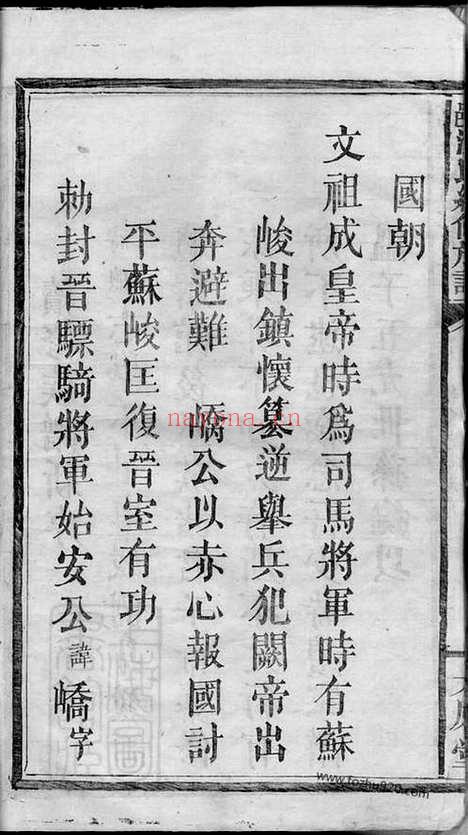 國朝
文祖成皇帝時爲司馬將軍時有蘇
峻出鎮懷篡逆舉兵犯闕帝出
奔避難 嶠公以赤心報國討
平蘇峻匡復晉室有功
勅封晉驃騎將軍始安公諱嶠字
nayona.cn
www.fozhu920.com